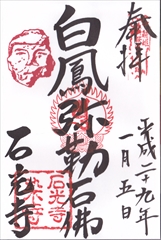 奉拝
平成二十九年
一月五日
白鳳弥勒石佛
石光寺
石光寺